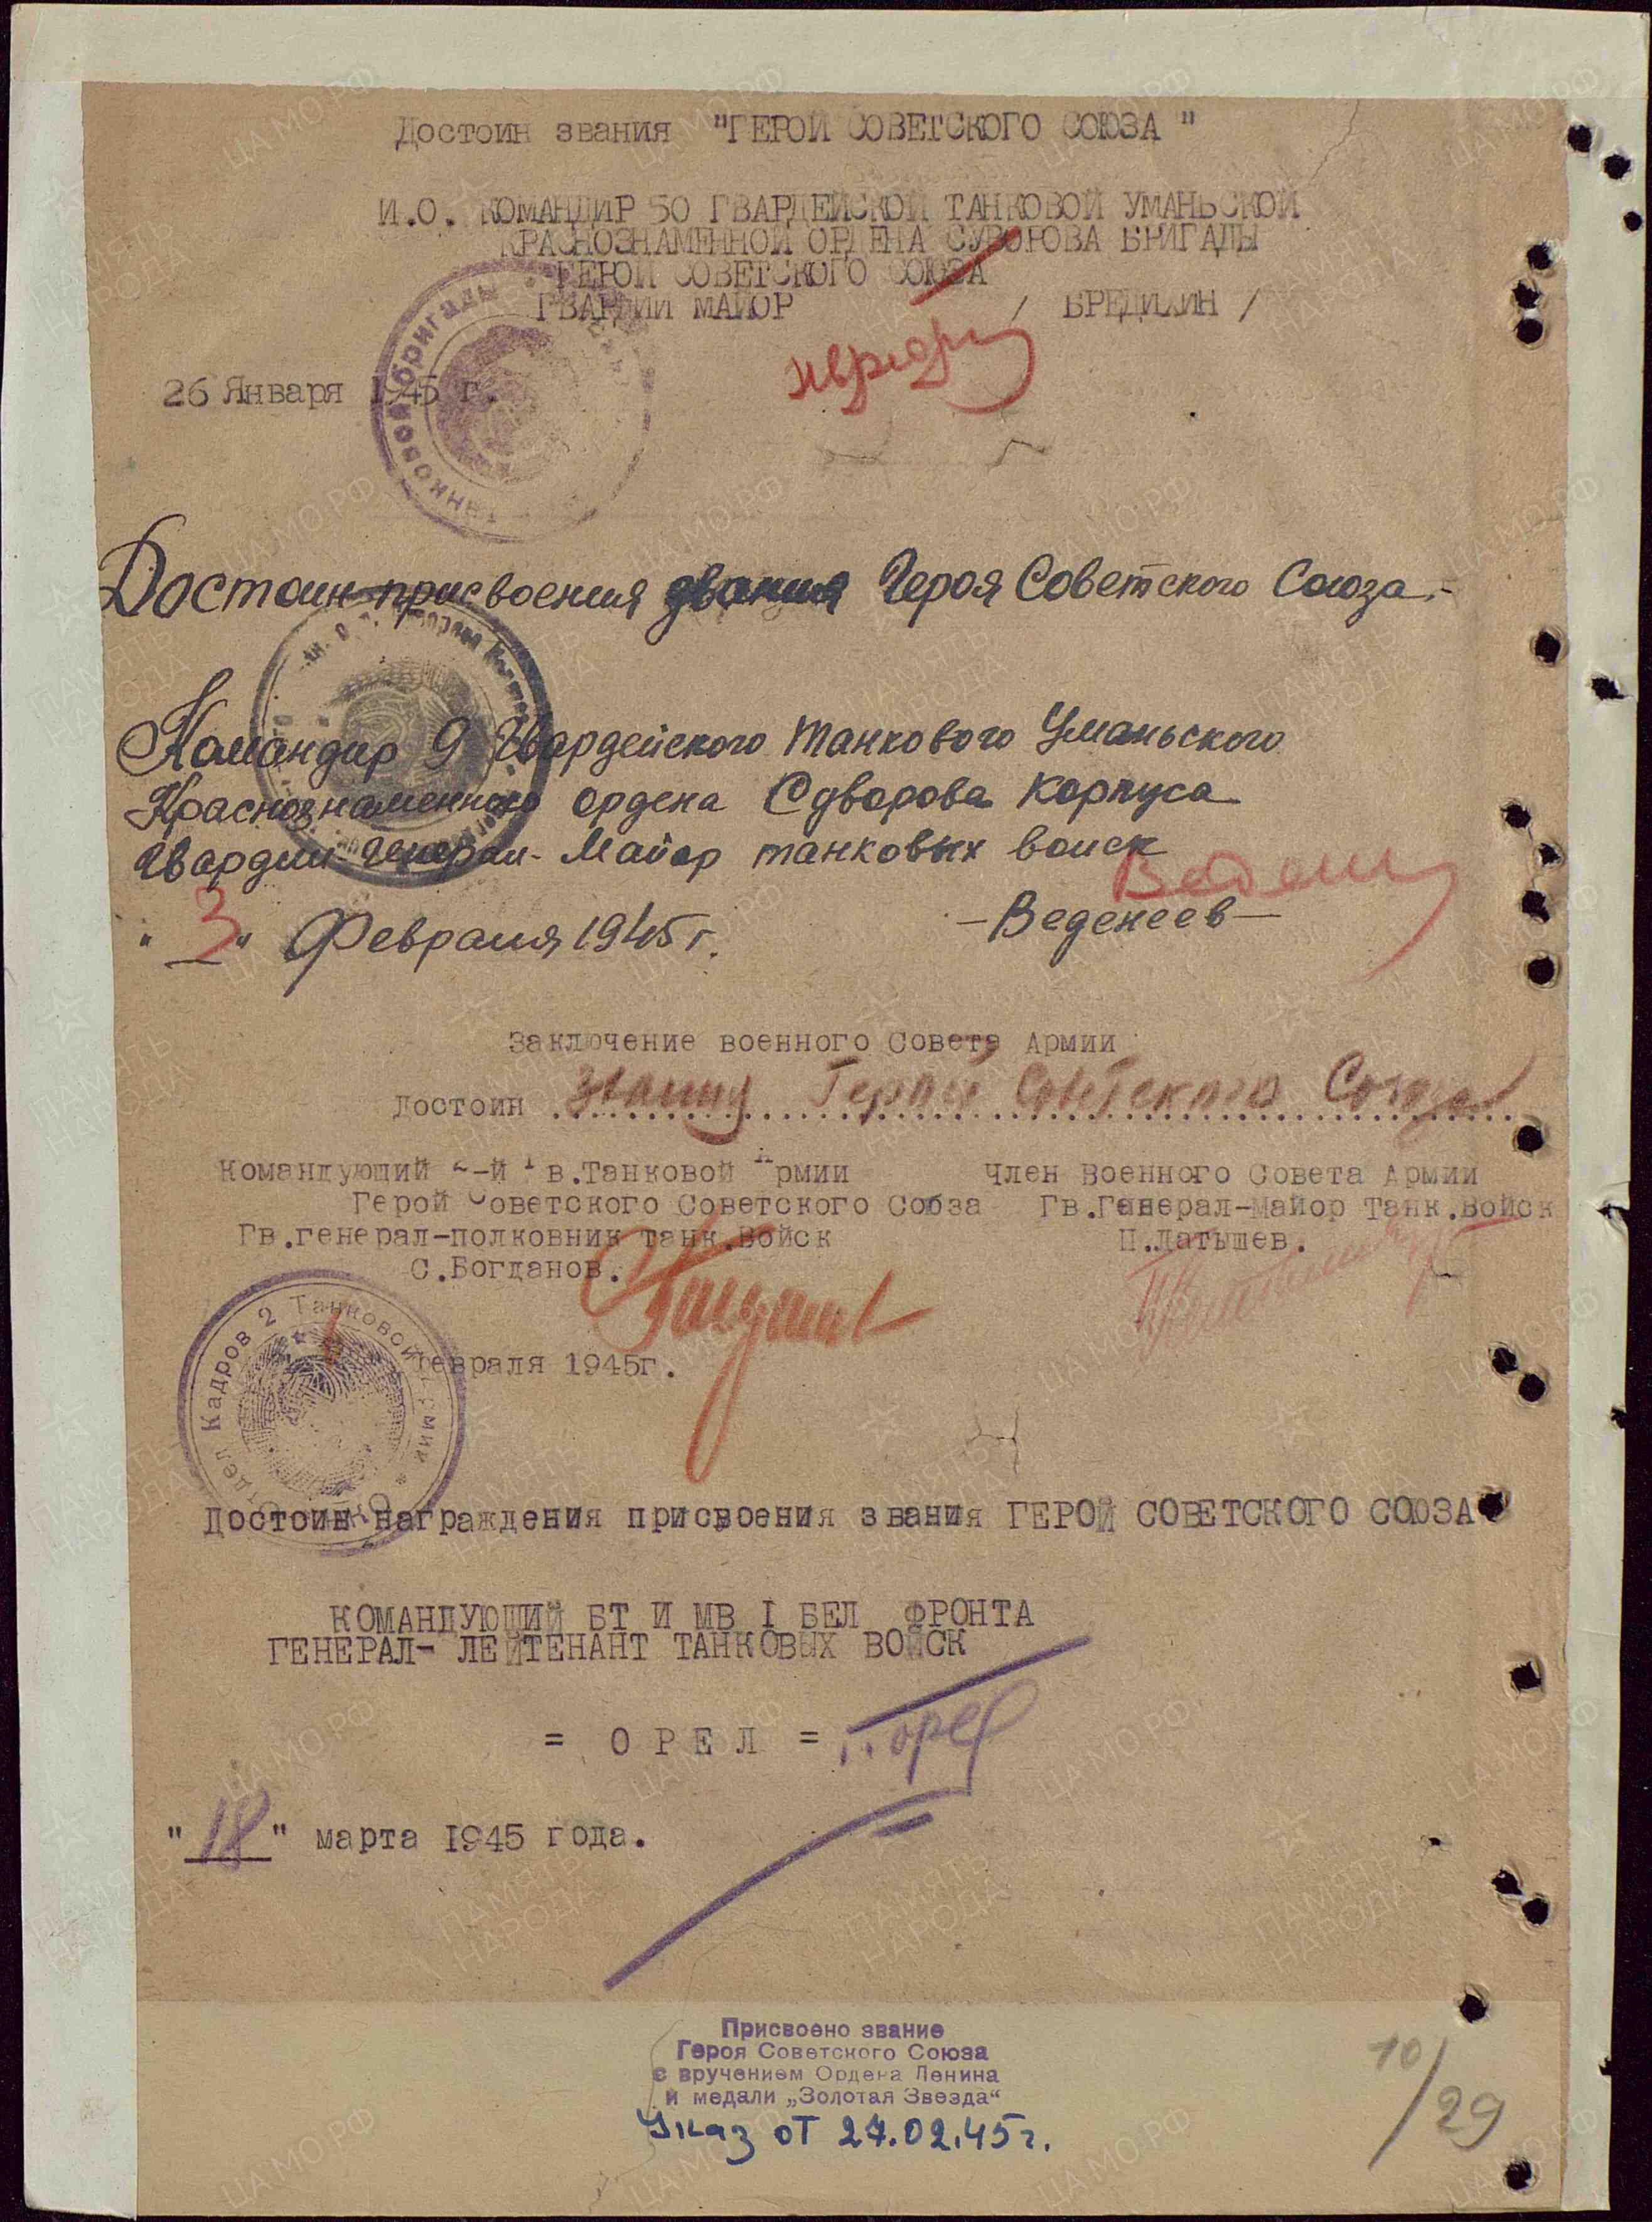 Достоин звания "ГЕРОЙ СОВЕТСКОГО СОЮЗА"
И.О. КОМАНДИР 50 ГВАРДЕЙСКОЙ ТАНКОВОЙ УМАНЬСКОЙ
КРАСНОЗНАМЕННОЙ ОРДЕНА СУВОРОВА БРИГАДЫ
ГЕРОЙ СОВЕТСКОГО СОЮЗА
ГВАРДИИ МАЙОР / БРЕДИХИН /
26 Января 1945 г.
танковой бригады
Достоин присвоения звания Героя Советского Союза.-
Командир 9 Гвардейского Танкового Уманьского
Краснознаменного ордена Сдворова Корпуса
Гвардии-Генерал-Майор танковых воиск
"3" Февраля 1945 г.
-Веденеев-
Заключение военного Совета Армии
Достоин званию Герой Советского Союза
Командующий 2-й Гв.Танковой Армии Член Военного Совета Армии
Герой Советского Советского Союза Гв.Генерал-Майор Танк.Войск
Гв.генерал-полковник танк.Войск П.Латышев.
С.Богданов.
февраля 1945г.
Отдел Кадров 2 Танковой Армии *
Достоин награждения присвоения звания ГЕРОЙ СОВЕТСКОГО СОЮЗА
КОМАНДУЮЩИЙ БТ И МВ I БЕЛ ФРОНТА
ГЕНЕРАЛ- ЛЕЙТЕНАНТ ТАНКОВЫХ ВОЙСК
= О Р Е Л =
"18" марта 1945 года.
Присвоено звание
Героя Советского Союза
с вручением Ордена Ленина
и медали „Золотая Звезда“
Указ от 27.02.45 г.
10/29
ЦА МО.РФ
ПАМЯТЬ НАРОДА